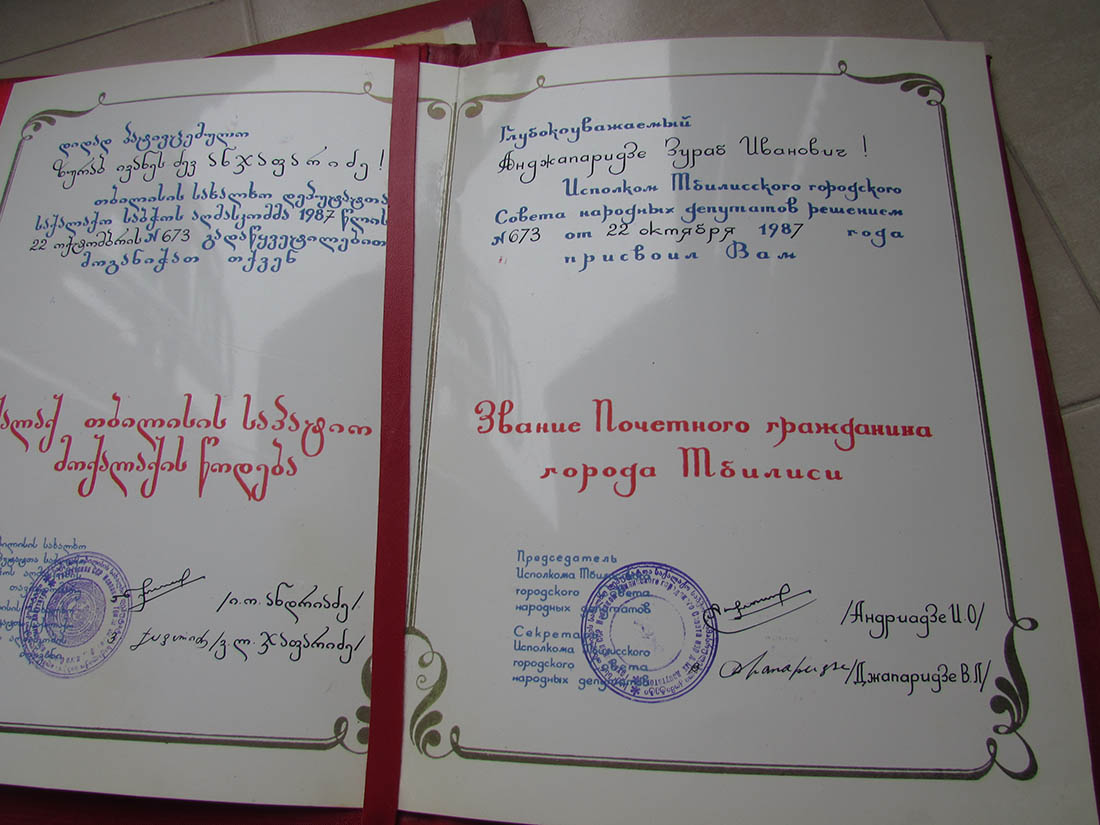 დიდად პატივცემულო
ზურაბ ივანეს ძევ ანჯაფარიძე!
თბილისის სახალხო დეპუტატთა
საქალაქო საბჭოს აღმასკომმა 1987 წლის
22 ოქტომბრის N673 გადაწყვეტილებით
მოგანიჭათ თქვენ
თბილისის საპატიო
მოქალაქის წოდება
სახალხო
/ი.ო. ანდრიაძე/
/ვ.ლ. ჯაფარიძე/
Глубокоуважаемый
Анджапаридзе Зураб Иванович!
Исполком Тбилисского городского
Совета народных депутатов решением
N673 от 22 октября 1987 года
присвоил Вам
Звание Почетного гражданина
города Тбилиси
Председатель
Исполкома Тбилисского
городского Совета
народных депутатов
/Андриадзе И.О/
Секретарь
Исполкома Тбилисского
городского Совета
народных депутатов
Джапаридзе /Джапаридзе В.Л/